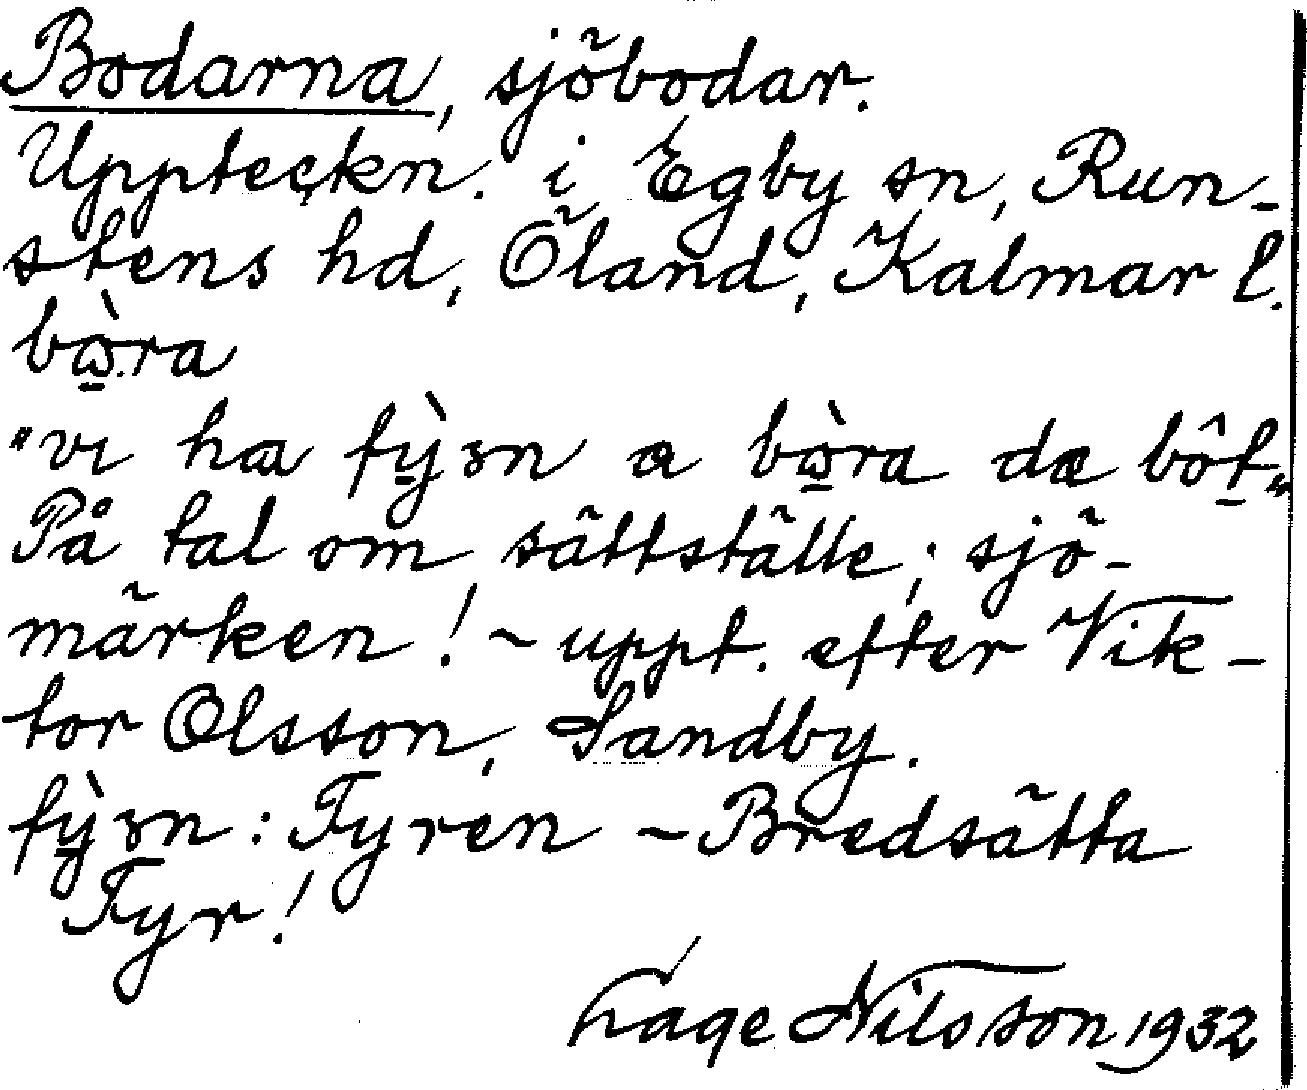 Bodarna, sjöbodar.
Uppteckn. i Egby sn, Run-
stens hd, Öland, Kalmar l.
bὼ̱ra
"vı ha fỳ̱ɜn a bὼ̱ra dæ bôt̠"
På tal om sättställe; sjö-
märken! ~ uppt. efter Vik-
tor Olsson, Sandby.
fỳ̱ɜn: Fyren ~ Bredsätta
Fyr!
Lage Nilsson 1932